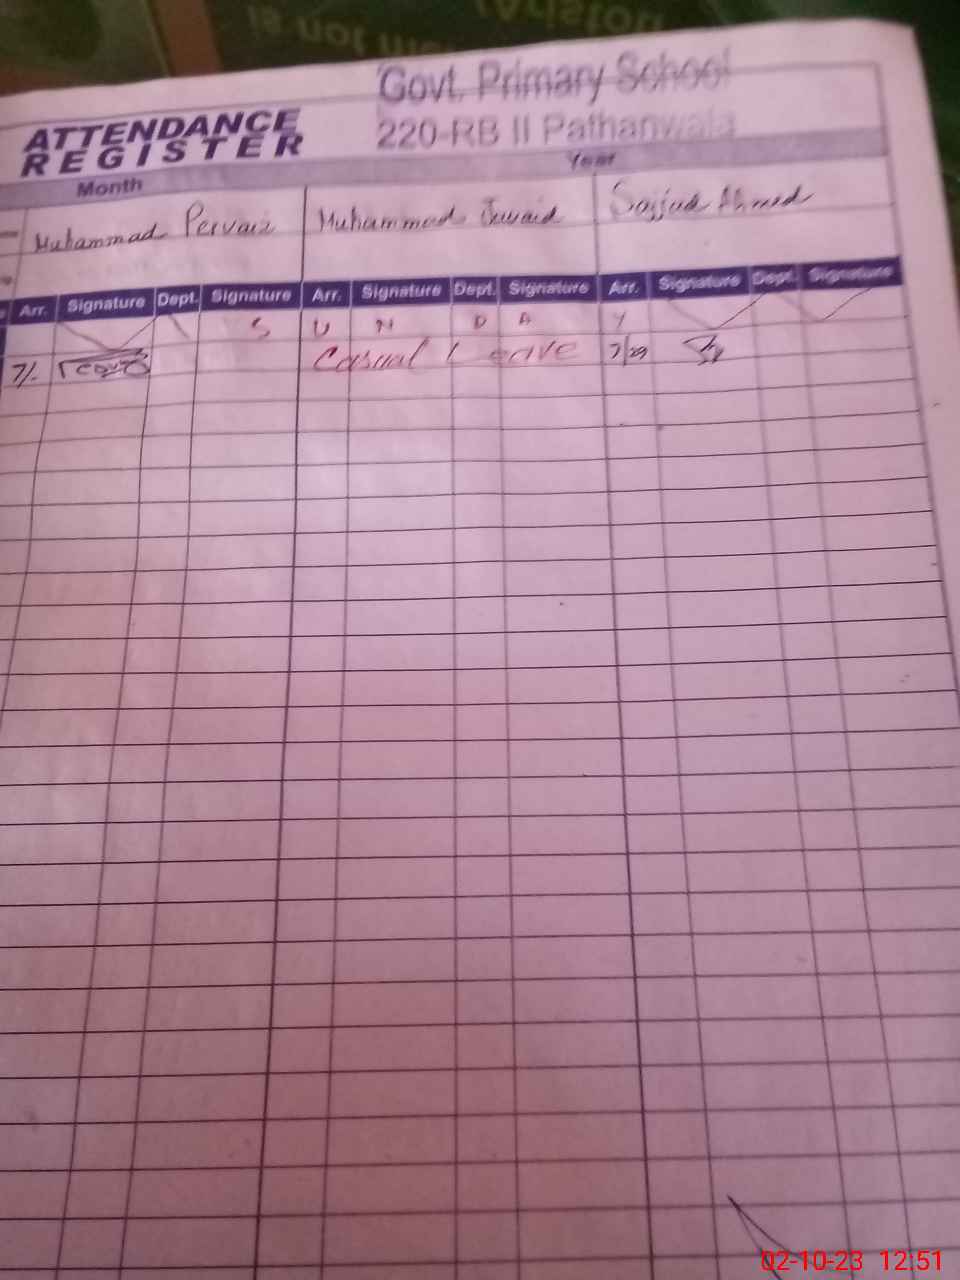 is not me
Govt. Primary School
220-RB II Pathanwala
ATTENDANCE
REGISTER
Month Year
Muhammad Pervaiz Muhammad Juvaid Sajjad Ahmed
Arr. Signature Dept. Signature Arr. Signature Dept. Signature Arr. Signature Dept. Signature
S U N D A Y
7/- Casual Leave 7/29
02-10-23 12:51